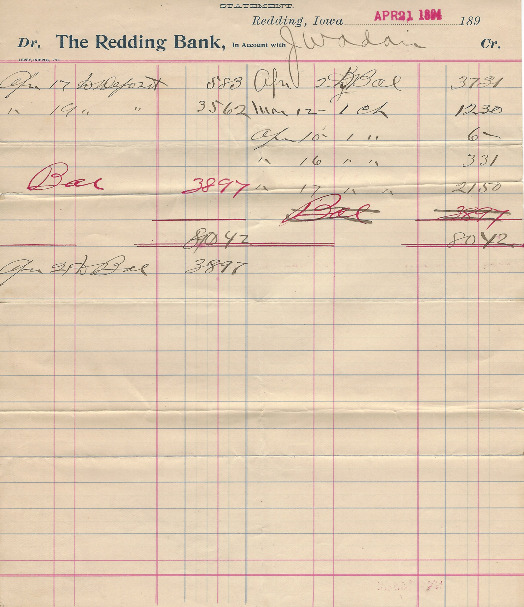 STATEMENT.
Redding, Iowa APR 21 1894 189
Dr. The Redding Bank, in Account with J W Adair Cr.
Apr 17 to Deposit 583 Apr 2 By Bal 3731
" 19 " " 3562 Mar 12 - 1 ch 1230
Apr 10 1 " 6 -
" 16 " " 331
Bal 3897 " 17 " " 2150
Bal 3897
8042 8042
Apr 21 to Bal 3897